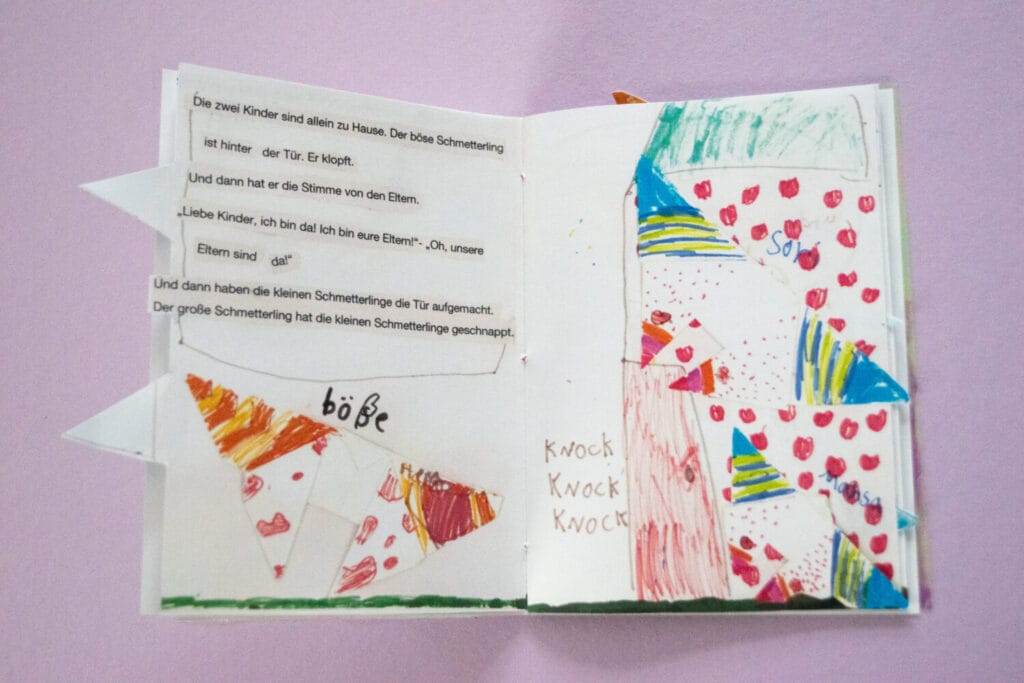 Die zwei Kinder sind allein zu Hause. Der böse Schmetterling
ist hinter der Tür. Er klopft.
Und dann hat er die Stimme von den Eltern.
„Liebe Kinder, ich bin da! Ich bin eure Eltern!“- „Oh, unsere
Eltern sind da!“
Und dann haben die kleinen Schmetterlinge die Tür aufgemacht.
Der große Schmetterling hat die kleinen Schmetterlinge geschnappt.
böße
KNOCK
KNOCK
KNOCK